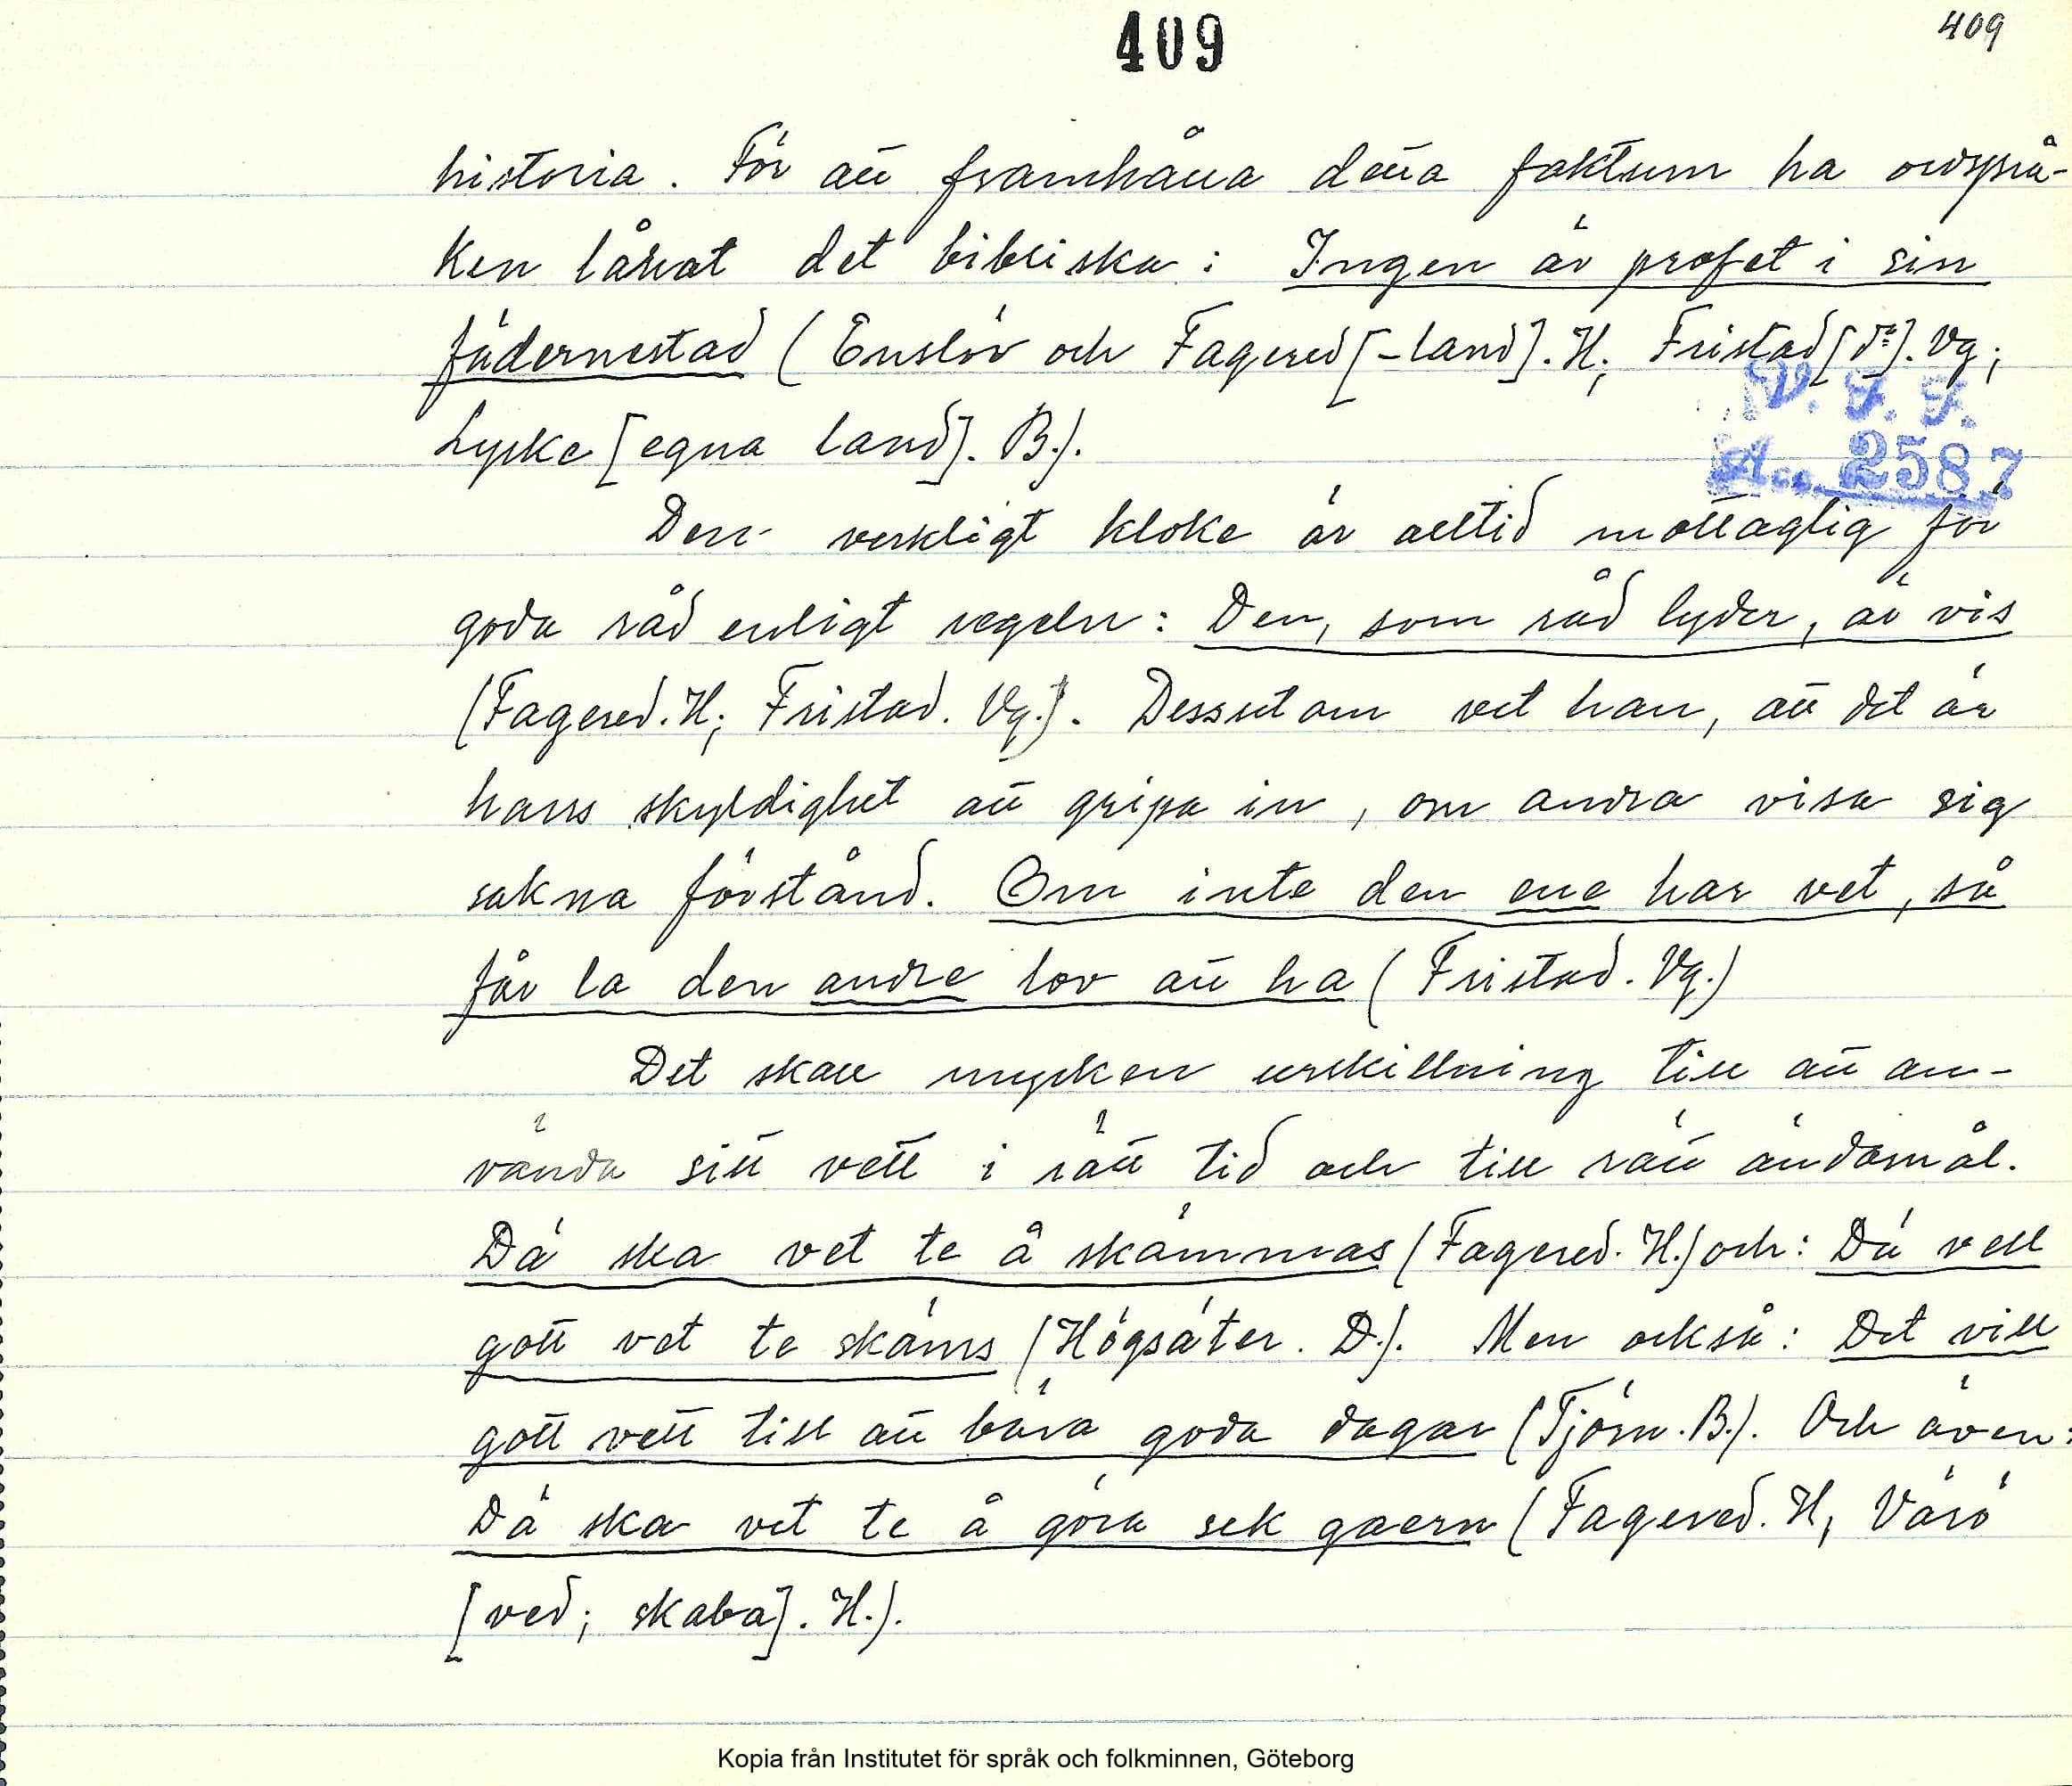 409
409
historia. För att framhäva detta faktum ha ordsprå-
ken lånat det bibliska: Ingen är profet i sin
fädernestad (Enslöv och Fagered [-land]. H; Fristad [d:o]. Vg;
Lycke [egna land]. B.).
V. F. F.
Acc. 2587
Den verkligt kloke är alltid mottaglig för
goda råd enligt regeln: Den, som råd lyder, är vis
(Fagered. H; Fristad. Vg.). Dessutom vet han, att det är
hans skyldighet att gripa in, om andra visa sig
sakna förstånd. Om inte den ene har vet, så
får la den andre lov att ha (Fristad. Vg.)
Det skall mycken urskillning till att an-
vända sitt vett i rätt tid och till rätt ändamål.
Dä ska vet te å skämmas (Fagered. H.) och: Dä vell
gott vet te skäms (Högsäter. D.). Men också: Det vill
gott vett till att bära goda dagar (Tjörn. B.). Och även:
Dä ska vet te å göra sek gaern (Fagered. H, Värö
[ved; skaba]. H.).
Kopia från Institutet för språk och folkminnen, Göteborg